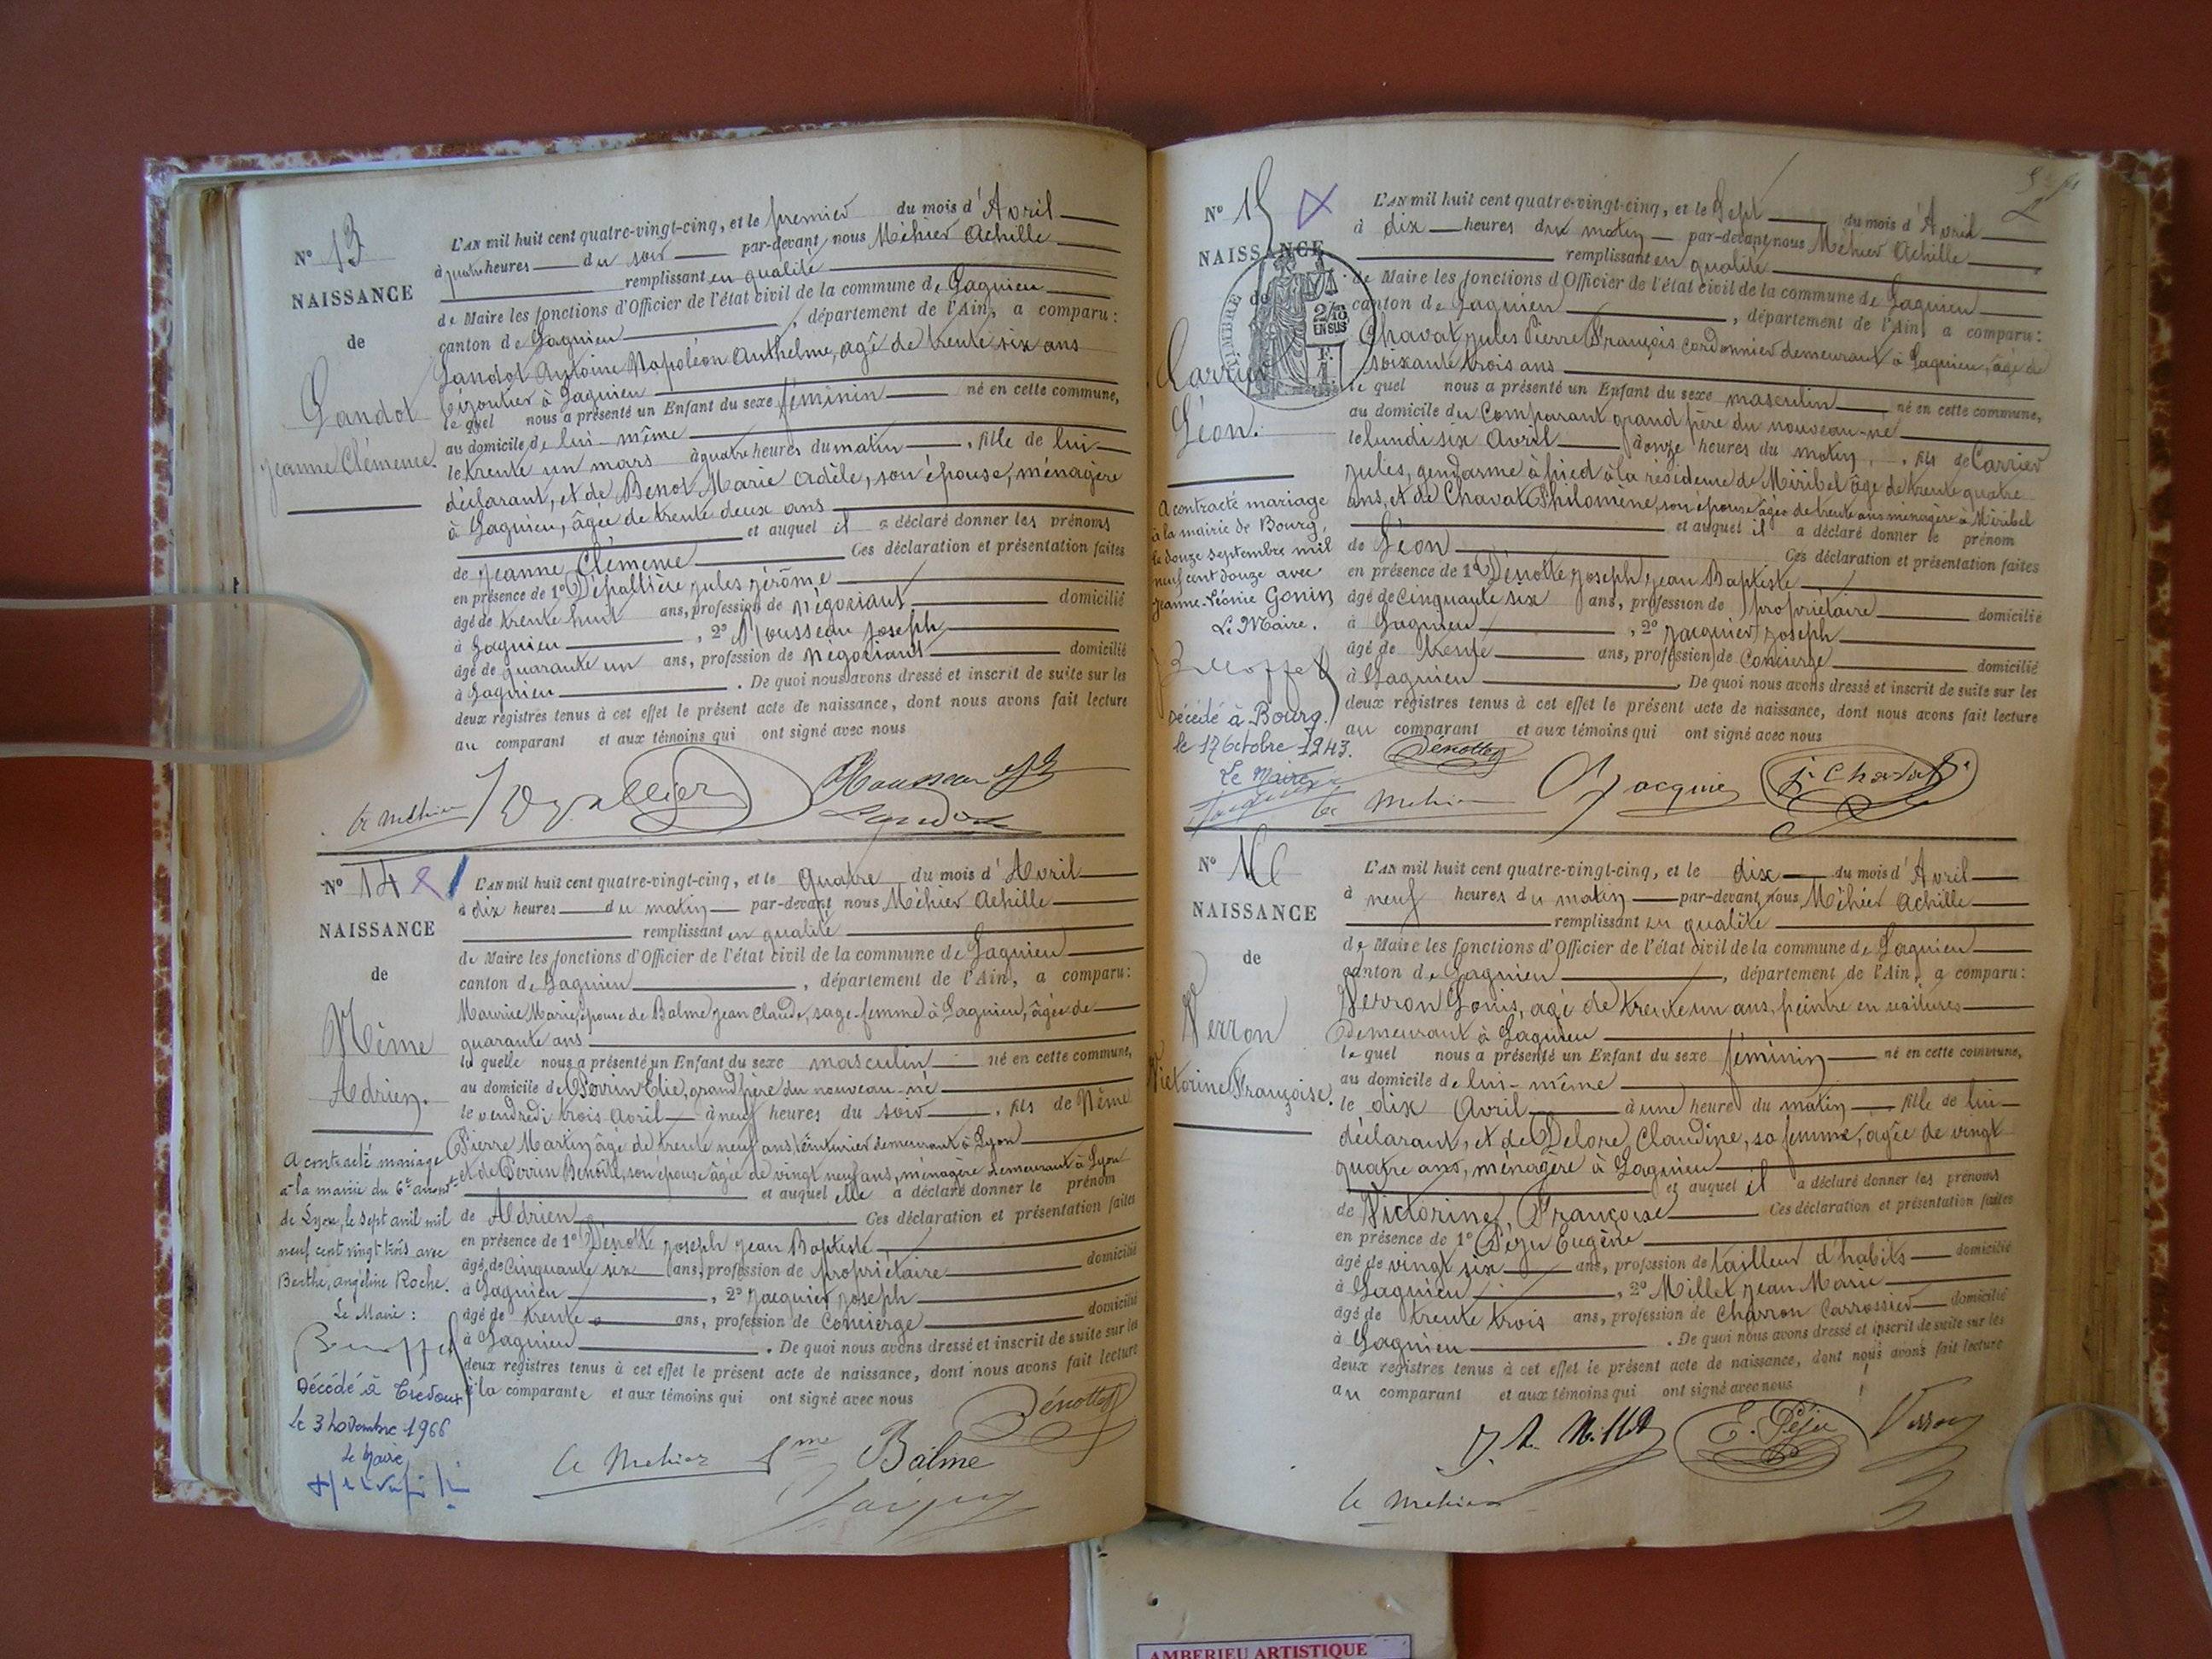 N° 13
NAISSANCE
de
Landot
Jeanne Clémence.
L'AN mil huit cent quatre-vingt-cinq, et le premier du mois d'Avril
à quatre heures du soir par-devant nous Méhier Achille
remplissant en qualité
de Maire les fonctions d'Officier de l'état civil de la commune de Lagnieu
canton de Lagnieu, département de l'Ain, a comparu:
Landot Antoine Napoléon Anthelme, agé de trente six ans
à Lagnieu
le quel nous a présenté un Enfant du sexe féminin né en cette commune,
au domicile de lui-même
le trente un mars à quatre heures du matin, fille de lui
déclarant, et de Benot Marie Adèle, son épouse, ménagère
à Lagnieu, âgée de trente deux ans
et auquel il a déclaré donner les prénoms
de Jeanne Clémence Ces déclaration et présentation faites
en présence de 1° Dépallière Jules Jérôme
âgé de trente huit ans, profession de Négociant domicilié
à Lagnieu, 2° Mousseau Joseph
âgé de quarante un ans, profession de Négociant domicilié
à Lagnieu. De quoi nous avons dressé et inscrit de suite sur les
deux registres tenus à cet effet le présent acte de naissance, dont nous avons fait lecture
au comparant et aux témoins qui ont signé avec nous
N° 14
NAISSANCE
de
Néme
Adrien.
A contracté mariage
à la mairie du 6e arrondt
de Lyon, le sept avril mil
neuf cent vingt trois avec
Berthe, angéline Roche.
Le Maire:
Décédé à Trévoux
le 3 novembre 1966
Le Maire,
L'AN mil huit cent quatre-vingt-cinq, et le Quatre du mois d'Avril
à dix heures du matin par-devant nous Méhier Achille
remplissant en qualité
de Maire les fonctions d'Officier de l'état civil de la commune de Lagnieu
canton de Lagnieu, département de l'Ain, a comparu:
Maurine Marie, épouse de Balme Jean Claude, sage-femme à Lagnieu, âgée de
quarante ans
la quelle nous a présenté un Enfant du sexe masculin né en cette commune,
au domicile de Perrin Elie, grand père du nouveau-né
le vendredi trois Avril à neuf heures du soir, fils de Néme
Pierre Martin âgé de trente neuf ans, teinturier demeurant à Lyon
et de Perrin Benoîte, son épouse âgée de vingt neuf ans, ménagère demeurant à Lyon
et auquel elle a déclaré donner le prénom
de Adrien Ces déclaration et présentation faites
en présence de 1° Dénotte Joseph Jean Baptiste
âgé de Cinquante six ans, profession de propriétaire domicilié
à Lagnieu, 2° Jacquier Joseph
âgé de trente ans, profession de Concierge domicilié
à Lagnieu. De quoi nous avons dressé et inscrit de suite sur les
deux registres tenus à cet effet le présent acte de naissance, dont nous avons fait lecture
à la comparante et aux témoins qui ont signé avec nous
Dénotte
A Mehier fme Balme
N° 15
NAISSANCE
de
Carrier
Léon.
2/10
EN SUS
A contracté mariage
à la mairie de Bourg,
le douze septembre mil
neuf cent douze avec
Jeanne-Léonie Gonin
Le Maire.
Décédé à Bourg
le 17 Octobre 1943.
Le Maire
L'AN mil huit cent quatre-vingt-cinq, et le Sept du mois d'Avril
à dix heures du matin par-devant nous Méhier Achille
remplissant en qualité
de Maire les fonctions d'Officier de l'état civil de la commune de Lagnieu
canton de Lagnieu, département de l'Ain, a comparu:
Chavat Jules Pierre François cordonnier demeurant à Lagnieu, âgé de
soixante trois ans
le quel nous a présenté un Enfant du sexe masculin né en cette commune,
au domicile du Comparant grand père du nouveau-né
le lundi six Avril à onze heures du matin, fils de Carrier
Jules, gendarme à pied à la résidence de Miribel âgé de trente quatre
ans, et de Chavat Philomène, son épouse âgée de trente ans ménagère à Miribel
et auquel il a déclaré donner le prénom
de Léon Ces déclaration et présentation faites
en présence de 1° Dénotte Joseph Jean Baptiste
âgé de Cinquante six ans, profession de propriétaire domicilié
à Lagnieu, 2° Jacquier Joseph
âgé de trente ans, profession de Concierge domicilié
à Lagnieu. De quoi nous avons dressé et inscrit de suite sur les
deux registres tenus à cet effet le présent acte de naissance, dont nous avons fait lecture
au comparant et aux témoins qui ont signé avec nous
Dénotte
A Mehier Jacquier J. Chavat
N° 16
NAISSANCE
de
Verron
Victorine Françoise.
L'AN mil huit cent quatre-vingt-cinq, et le dix du mois d'Avril
à neuf heures du matin par-devant nous Méhier Achille
remplissant en qualité
de Maire les fonctions d'Officier de l'état civil de la commune de Lagnieu
canton de Lagnieu, département de l'Ain, a comparu:
Verron Louis, agé de trente un ans, peintre en voitures
demeurant à Lagnieu
le quel nous a présenté un Enfant du sexe féminin né en cette commune,
au domicile de lui-même
le dix Avril à une heure du matin, fille de lui
déclarant, et de Delore Claudine, sa femme, agée de vingt
quatre ans, ménagère à Lagnieu
et auquel il a déclaré donner les prénoms
de Victorine, Françoise Ces déclaration et présentation faites
en présence de 1° Péju Eugène
âgé de vingt six ans, profession de tailleur d'habits domicilié
à Lagnieu, 2° Millet Jean Marie
âgé de trente trois ans, profession de Charron Carrossier domicilié
à Lagnieu. De quoi nous avons dressé et inscrit de suite sur les
deux registres tenus à cet effet le présent acte de naissance, dont nous avons fait lecture
au comparant et aux témoins qui ont signé avec nous
J. M. Millet E. Péju Verron
A Mehier
AMBERIEU ARTISTIQUE